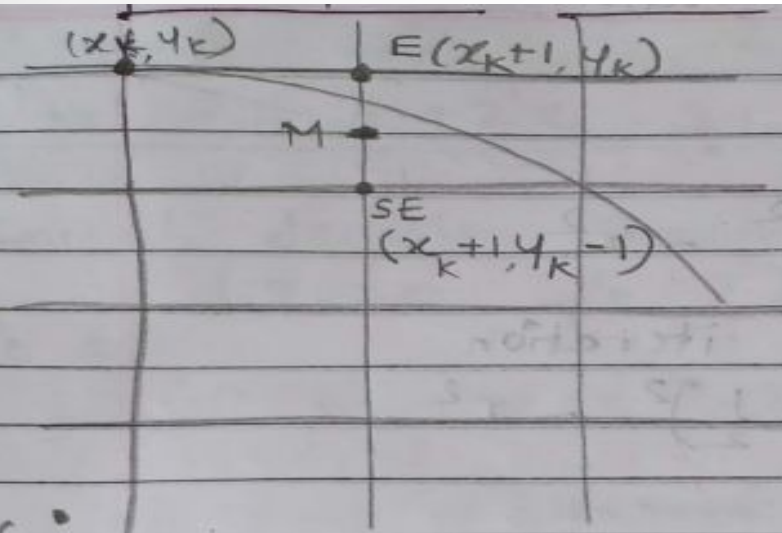 (xₖ, yₖ) E(xₖ+1, yₖ)
M
SE
(xₖ+1, yₖ-1)